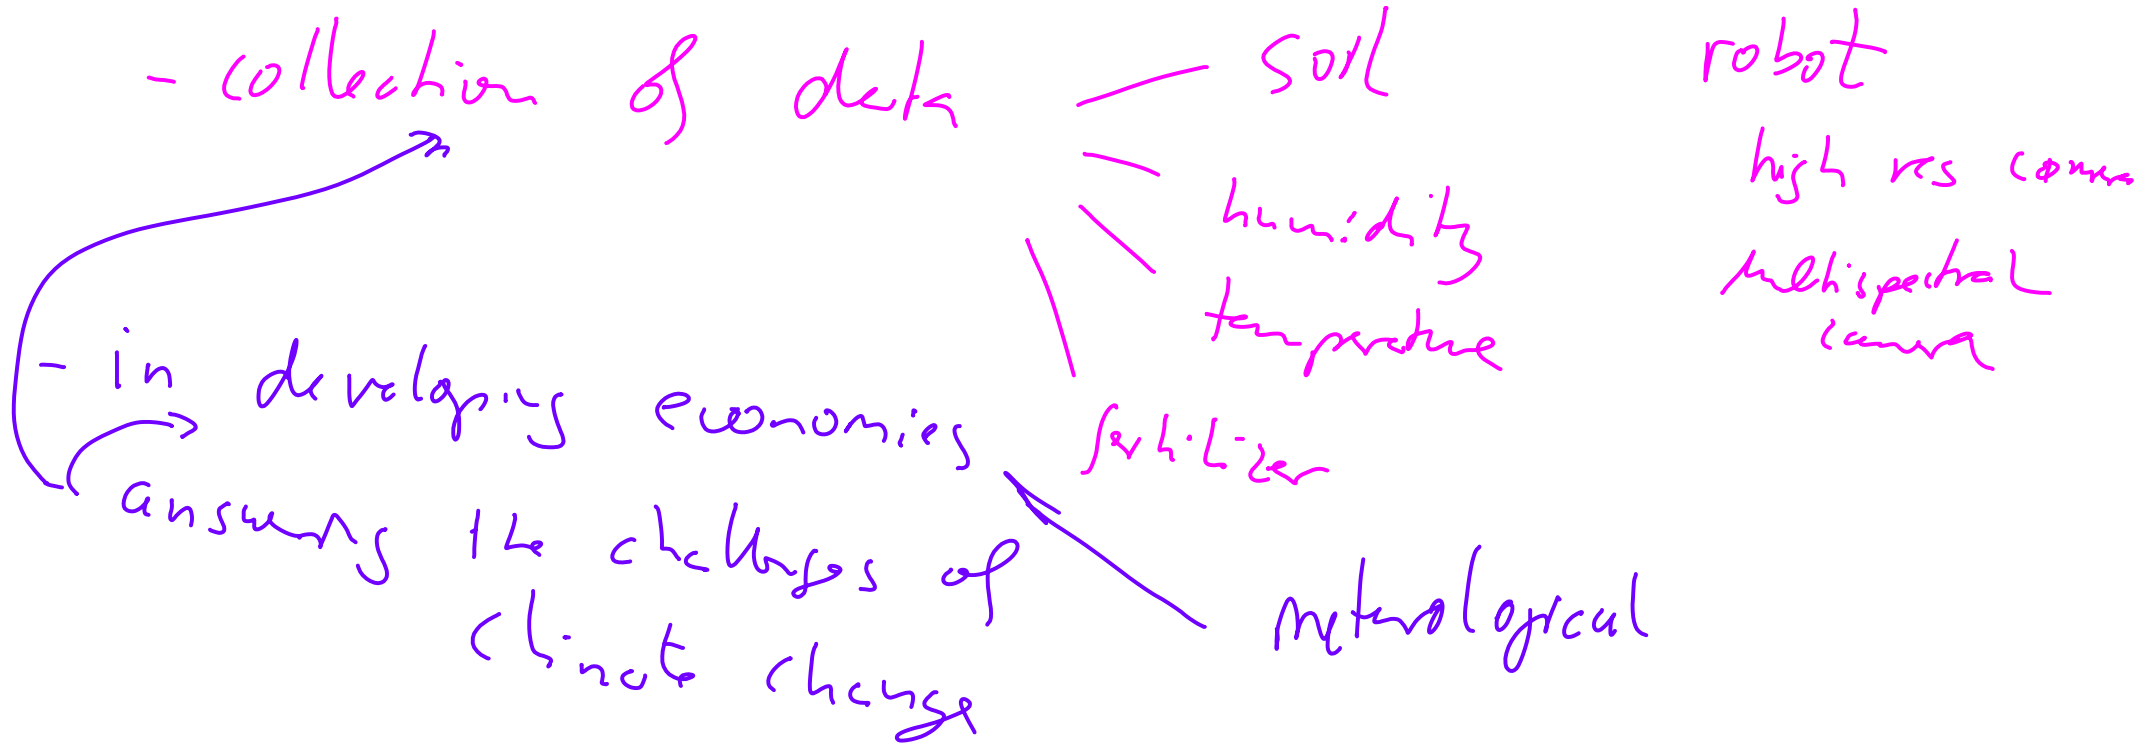 - collection of data
soil
humidity
temperature
fertilizer
robot
high res camera
multispectral
camera
- in developing economies
answering the challenges of
climate change
meterological